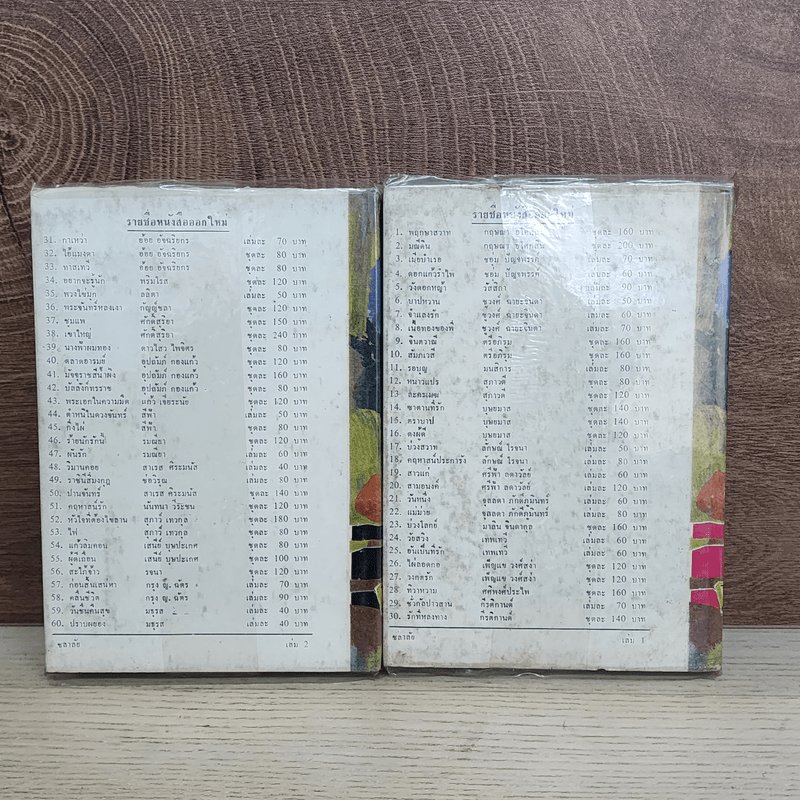 รายชื่อหนังสือออกใหม่
31. กาเหว่า ย้อย อัจฉริยกร เล่มละ 70 บาท
32. ไอ้แมงดา ย้อย อัจฉริยกร ชุดละ 80 บาท
33. ทาสเทวี ย้อย อัจฉริยกร ชุดละ 80 บาท
34. อยากจะรู้นัก พริมโรส ชุดละ 120 บาท
35. พวงไข่มุก ลลิตา เล่มละ 50 บาท
36. พระจันทร์หลงเงา กัญญ์ชลา ชุดละ 120 บาท
37. ขุมแพ ศักดิ์สุริยา ชุดละ 150 บาท
38. เขาใหญ่ ศักดิ์สุริยา ชุดละ 240 บาท
39. นางฟ้าผมทอง ดาวไสว ไพจิตร ชุดละ 80 บาท
40. ตลาดอารมย์ อุปถัมภ์ กองแก้ว ชุดละ 120 บาท
41. มัจจุราชสีน้ำผึ้ง อุปถัมภ์ กองแก้ว ชุดละ 160 บาท
42. บัลลังก์ทรราช อุปถัมภ์ กองแก้ว ชุดละ 80 บาท
43. พระเอกในความมืด แก้ว เจียระนัย ชุดละ 120 บาท
44. ตำหนิในดวงจันทร์ สีฟ้า เล่มละ 50 บาท
45. กิ่งไผ่ สีฟ้า ชุดละ 80 บาท
46. ร้ายนักรักนี้ รมณียา ชุดละ 120 บาท
47. ผู้นี้รัก รมณียา เล่มละ 60 บาท
48. วิมานคอย สาเรส ศิระมนัส เล่มละ 40 บาท
49. ราชินีสีมงกุฎ ช่อวิรุณ เล่มละ 80 บาท
50. ปานจันทร์ สาเรส ศิระมนัส ชุดละ 140 บาท
51. คฤหาสน์รัก นันทนา วีระชน ชุดละ 120 บาท
52. หัวใจที่ต้องไขลาน สุภาว์ เทวกุล ชุดละ 180 บาท
53. ไฟ สุภาว์ เทวกุล ชุดละ 80 บาท
54. แก้วลืมคอน เสนีย์ บุษปะเกศ ชุดละ 80 บาท
55. ผู้ดีเถื่อน เสนีย์ บุษปะเกศ ชุดละ 100 บาท
56. สะใภ้จ้าว รจนา ชุดละ 120 บาท
57. ก่อนสิ้นเสน่หา กรุง ญ. ฉัตร เล่มละ 70 บาท
58. คลื่นชีวิต กรุง ญ. ฉัตร เล่มละ 90 บาท
59. วันชื่นคืนสุข มธุรส เล่มละ 40 บาท
60. ปราบพยอง มธุรส เล่มละ 40 บาท
ชลาลัย เล่ม 2
รายชื่อหนังสือออกใหม่
1. พฤกษาสวาท กฤษณา อโศกสิน ชุดละ 160 บาท
2. มณีดิน กฤษณา อโศกสิน ชุดละ 200 บาท
3. เมียบำเรอ ชอุ่ม ปัญจพรรค์ เล่มละ 70 บาท
4. ดอกแก้วรำไพ ชอุ่ม ปัญจพรรค์ เล่มละ 60 บาท
5. วังดอกหญ้า วัสสิกา เล่มละ 90 บาท
6. บาปหวาน ชูวงศ์ ฉายะจินดา เล่มละ 50 บาท
7. จำแลงรัก ชูวงศ์ ฉายะจินดา เล่มละ 60 บาท
8. เนื้อทองของพี่ ชูวงศ์ ฉายะจินดา เล่มละ 70 บาท
9. จันตวาณี ตรีอภิรุม ชุดละ 160 บาท
10. สมภเวสี ตรีอภิรุม ชุดละ 160 บาท
11. รอบุญ มนสิการ เล่มละ 80 บาท
12. หนาวแปร สุภาวดี ชุดละ 80 บาท
13. ละครเมฆ สุภาวดี ชุดละ 120 บาท
14. ซาตานที่รัก บุษยมาส ชุดละ 140 บาท
15. ตราบาป บุษยมาส ชุดละ 160 บาท
16. ดงผู้ดี บุษยมาส ชุดละ 120 บาท
17. บ่วงสวาท ลักษณ์ โรจนา เล่มละ 60 บาท
18. คฤหาสน์ประการัง ลักษณ์ โรจนา เล่มละ 80 บาท
19. สาวแก่ ศรีฟ้า ลดาวัลย์ เล่มละ 60 บาท
20. สามอนงค์ ศรีฟ้า ลดาวัลย์ ชุดละ 120 บาท
21. วันหนึ่ง จุลลดา ภักดีภูมินทร์ เล่มละ 60 บาท
22. แม่ม่าย จุลลดา ภักดีภูมินทร์ เล่มละ 80 บาท
23. บ่วงโลกีย์ มาลิน จินดากุล ชุดละ 160 บาท
24. วัยสวิง เทพเทวี เล่มละ 60 บาท
25. อันเป็นที่รัก เทพเทวี เล่มละ 60 บาท
26. ไผ่ลอดกอ เพ็ญแข วงศ์สง่า ชุดละ 120 บาท
27. วงกตรัก เพ็ญแข วงศ์สง่า ชุดละ 120 บาท
28. ทิวาหวาม ศศิพงศ์ประไพ ชุดละ 160 บาท
29. ชั่วกัลปาวสาน กีรติกานต์ ชุดละ 140 บาท
30. รักที่หลงทาง กีรติกานต์ ชุดละ 140 บาท
ชลาลัย เล่ม 1